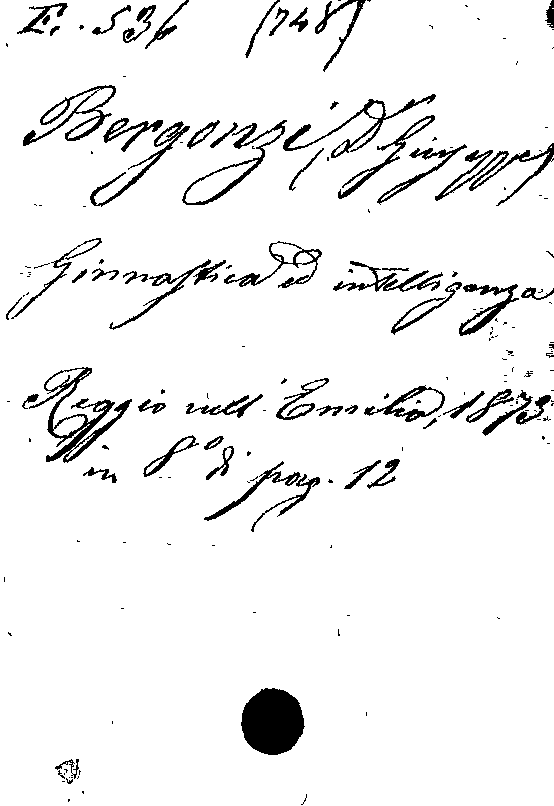 E. 536 (748)
Bergonzi, Dr Giuseppe
Ginnastica ed intelligenza
Reggio nell' Emilia, 1873
in 8° di pag. 12